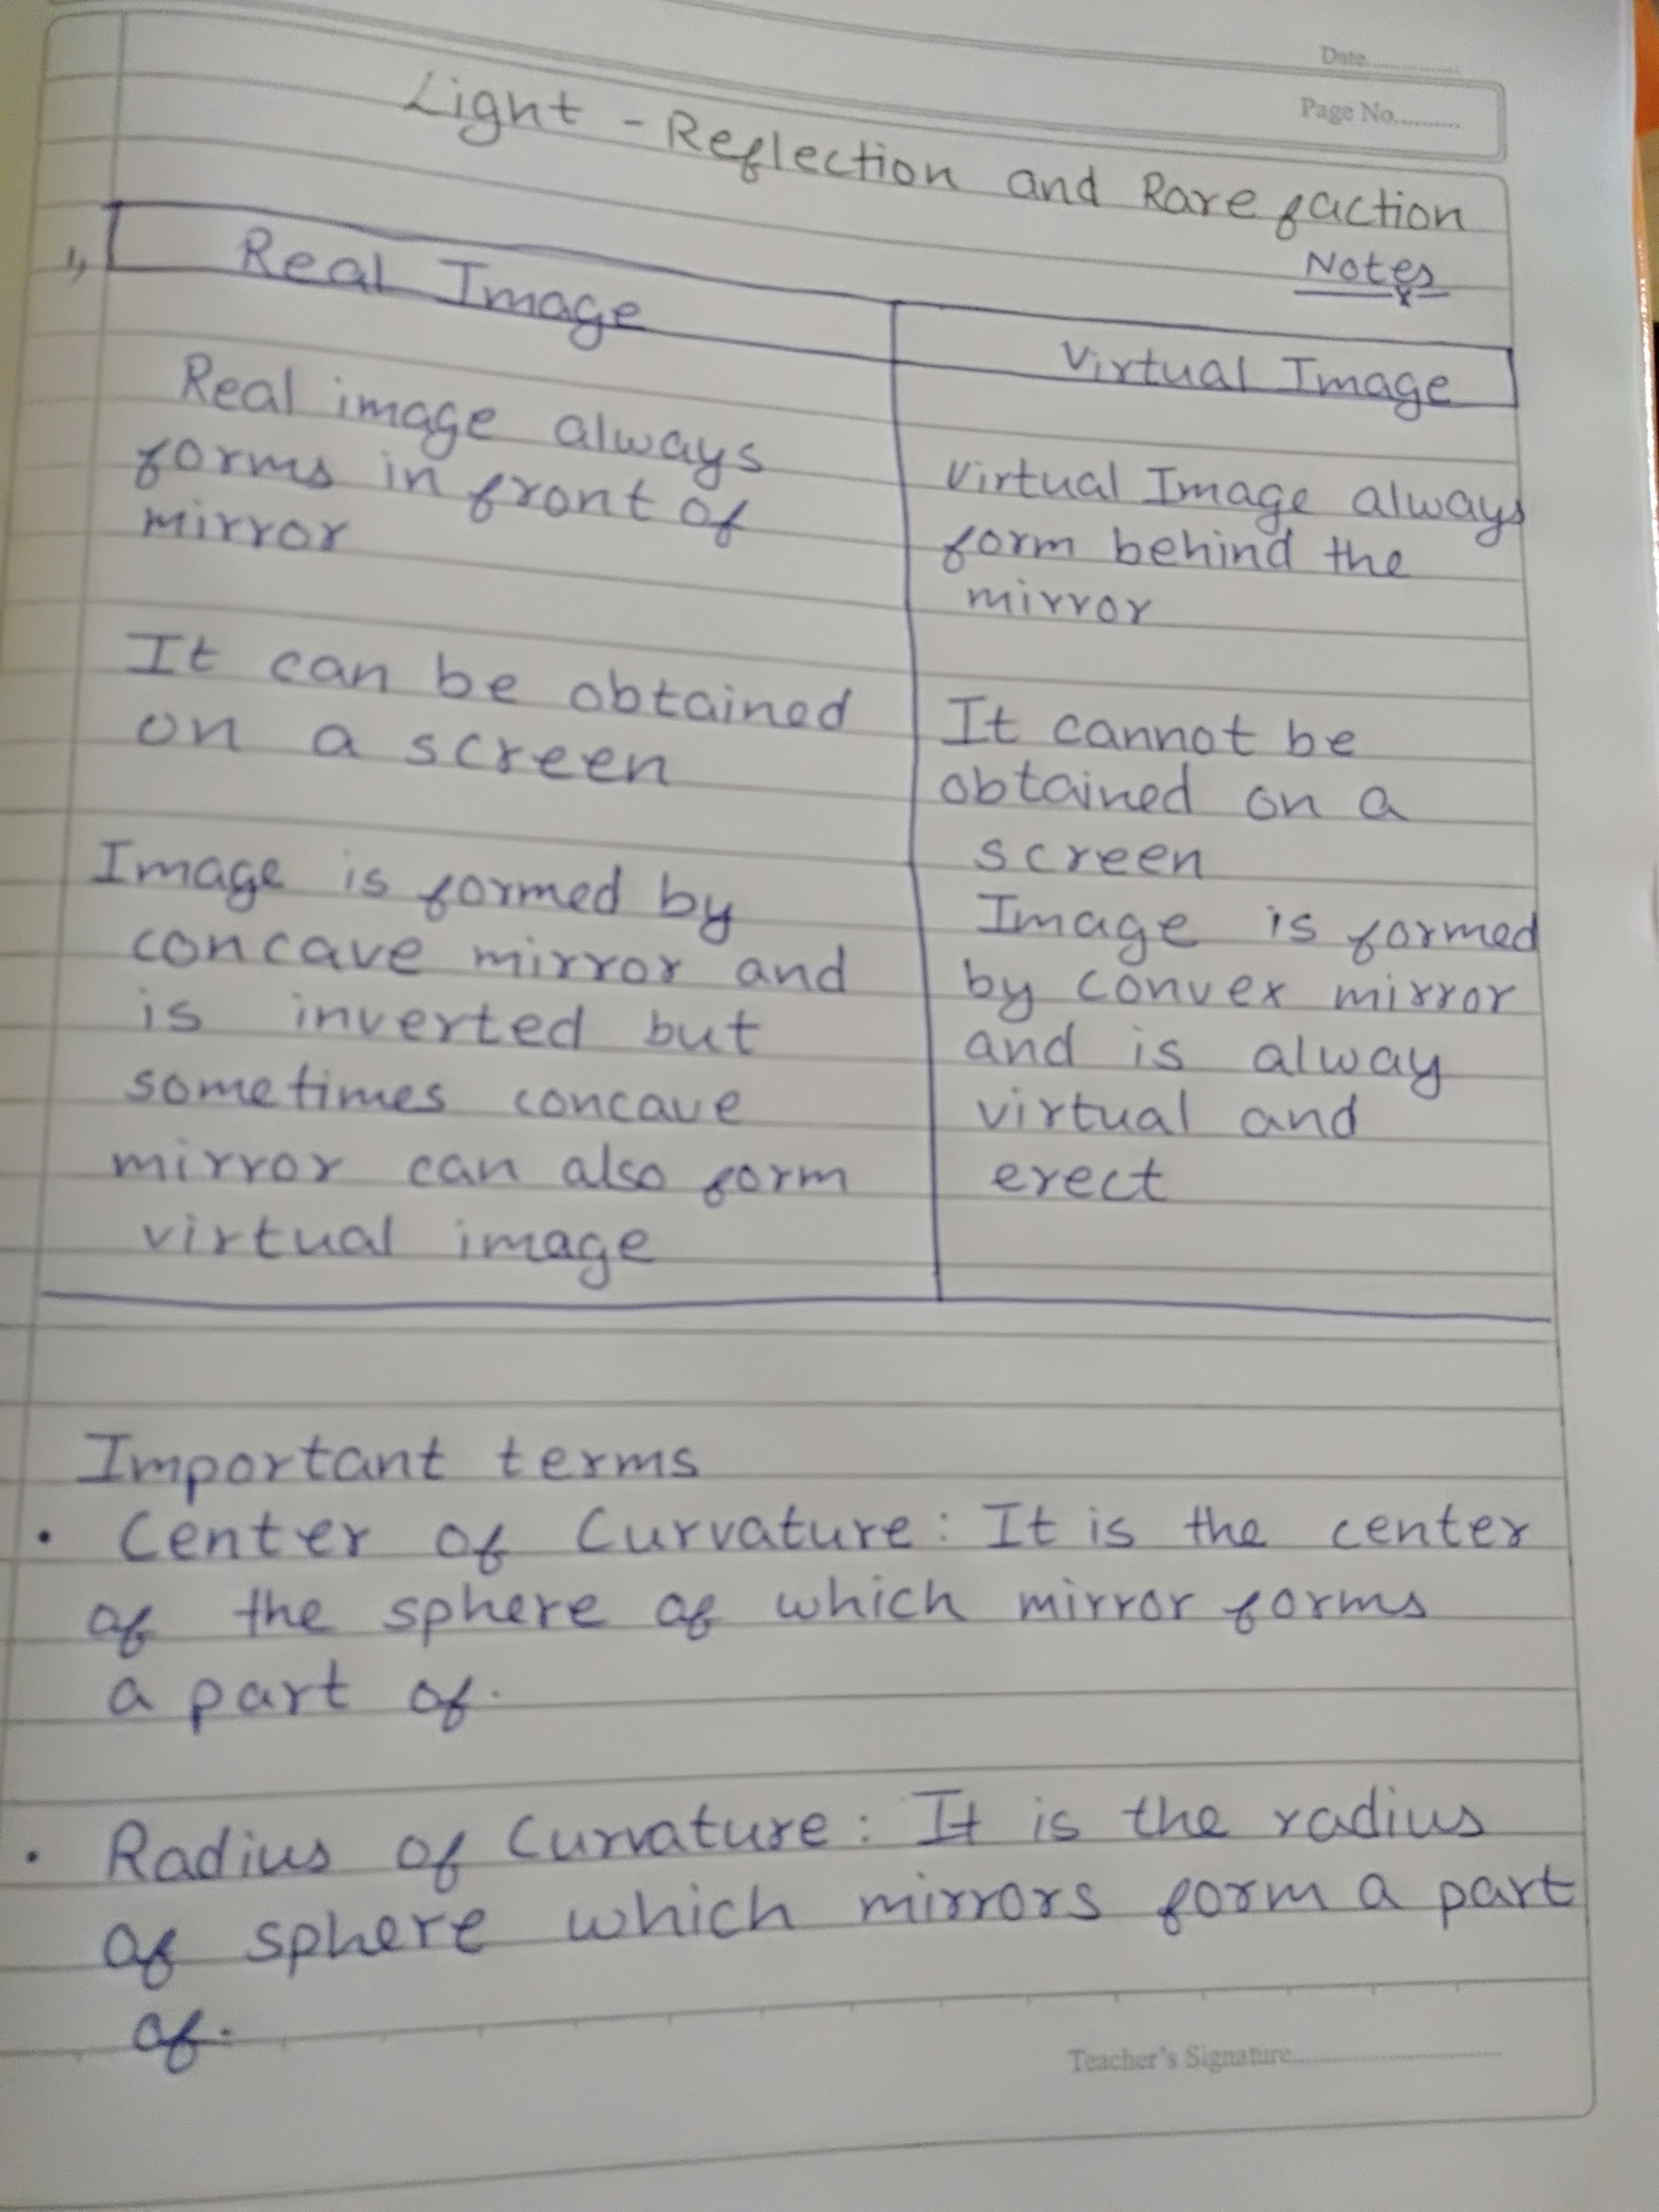 Date..............
Page No...........
Light - Reflection and Rarefaction
Notes
1,
Real Image
Virtual Image
Real image always
forms in front of
mirror
Virtual Image always
form behind the
mirror
It can be obtained
on a screen
It cannot be
obtained on a
screen
Image is formed by
concave mirror and
is inverted but
sometimes concave
mirror can also form
virtual image
Image is formed
by convex mirror
and is alway
virtual and
erect
Important terms
• Center of Curvature: It is the center
of the sphere of which mirror forms
a part of.
• Radius of Curvature: It is the radius
of sphere which mirrors form a part
of.
Teacher's Signature..............................